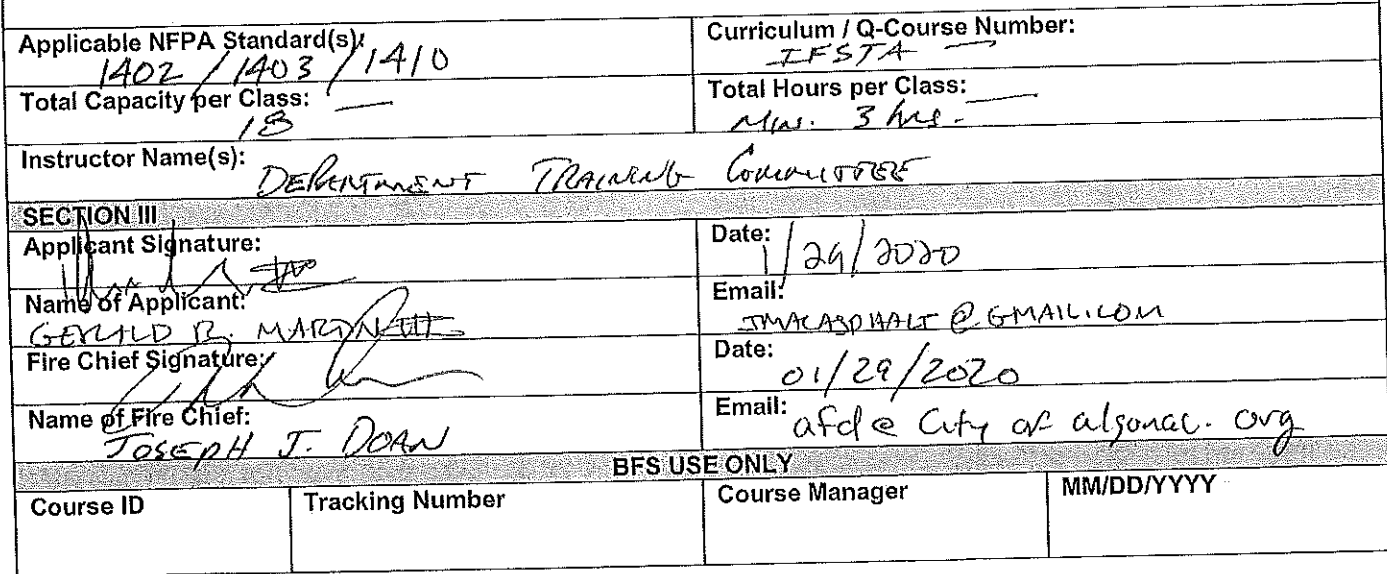 Applicable NFPA Standard(s):
1402 / 1403 / 1410
Curriculum / Q-Course Number:
IFSTA —
Total Capacity per Class: —
18
Total Hours per Class: —
Min. 3 hrs.
Instructor Name(s):
DEPARTMENT TRAINING COMMITTEE
SECTION III
Applicant Signature:
Date:
1/29/2020
Name of Applicant:
GERALD R. 
Email:
JMACASPHALT @ GMAIL.COM
Fire Chief Signature:
Date:
01/29/2020
Name of Fire Chief:
JOSEPH J. DOAN
Email:
afd@ City of algonac. org
BFS USE ONLY
Course ID
Tracking Number
Course Manager
MM/DD/YYYY